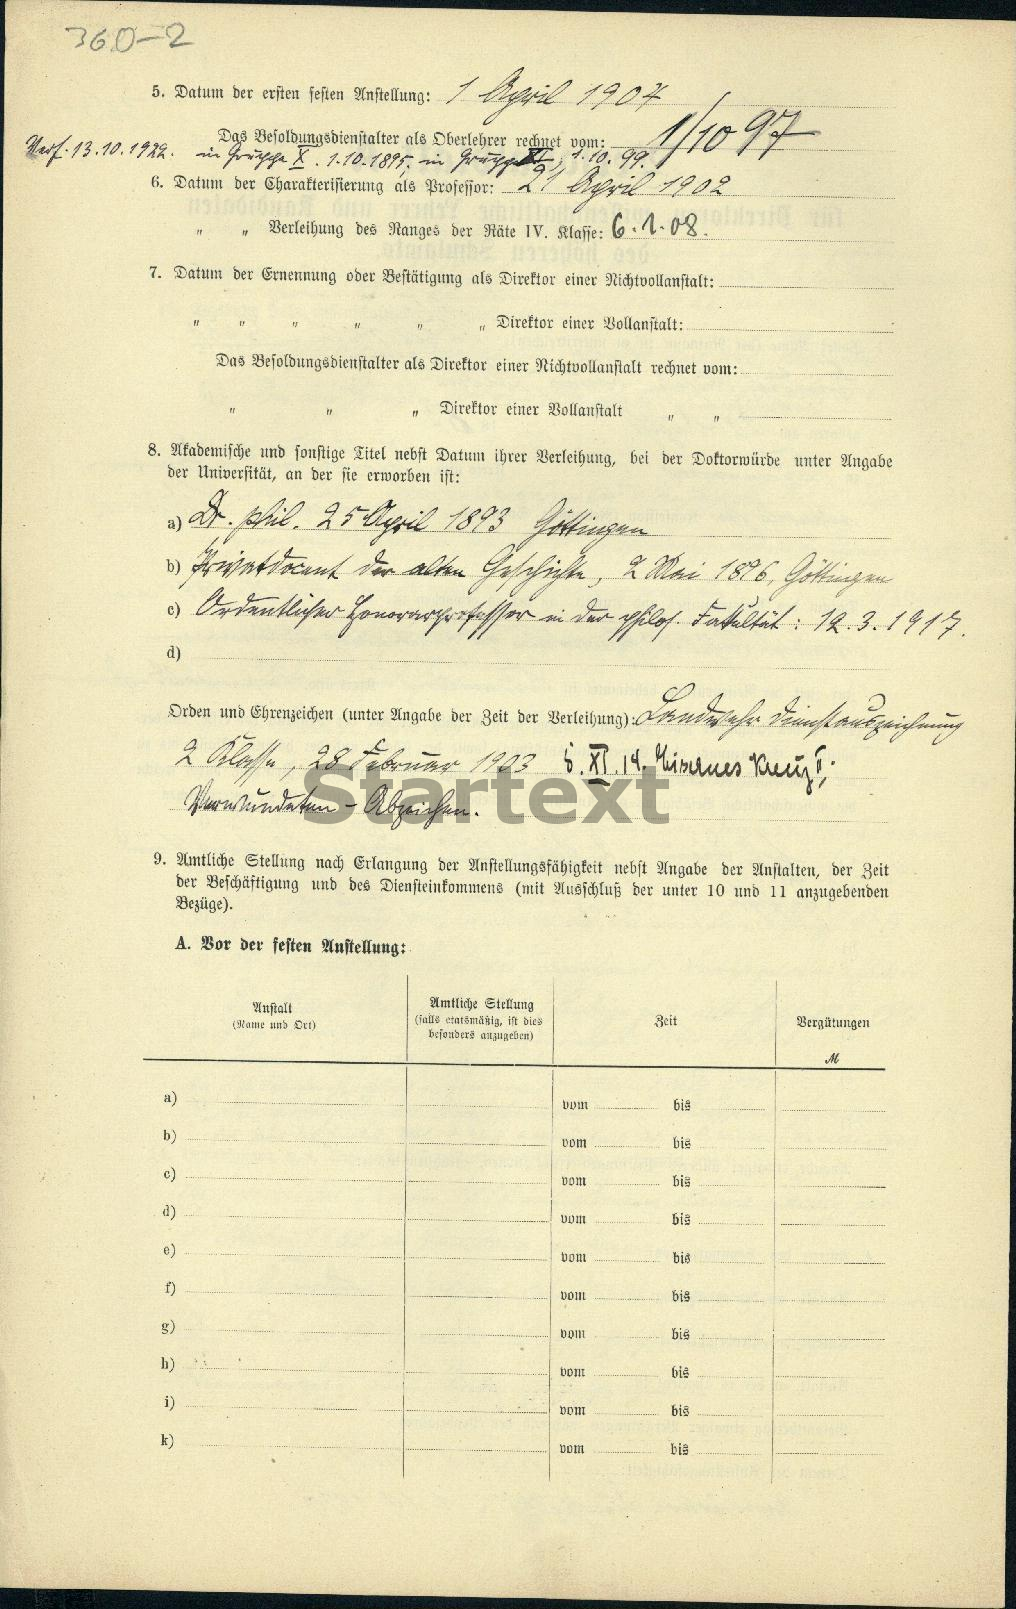 360-2
5. Datum der ersten festen Anstellung: 1 April 1904
Das Besoldungsdienstalter als Oberlehrer rechnet vom: 1/10 97
Verf. 13.10.1922. in Gruppe X. 1.10.1895, in Gruppe XI, 1.10.99.
6. Datum der Charakterisierung als Professor: 21 April 1902
" " Verleihung des Ranges der Räte IV. Klasse: 6.1.08.
7. Datum der Ernennung oder Bestätigung als Direktor einer Nichtvollanstalt:
" " " " " " Direktor einer Vollanstalt:
Das Besoldungsdienstalter als Direktor einer Nichtvollanstalt rechnet vom:
" " " Direktor einer Vollanstalt " "
8. Akademische und sonstige Titel nebst Datum ihrer Verleihung, bei der Doktorwürde unter Angabe
der Universität, an der sie erworben ist:
a) Dr. phil. 25 April 1893 Göttingen
b) Privatdocent der alten Geschichte, 2 Mai 1896, Göttingen
c) Ordentlicher Honorarprofessor in der philos. Fakultät: 12.3.1917.
d)
Orden und Ehrenzeichen (unter Angabe der Zeit der Verleihung): Landwehr Dienstauszeichnung
2 Klasse, 28 Februar 1903 5. XI. 14. Eisernes Kreuz II;
Verwundeten-Abzeichen.
Startext
9. Amtliche Stellung nach Erlangung der Anstellungsfähigkeit nebst Angabe der Anstalten, der Zeit
der Beschäftigung und des Diensteinkommens (mit Ausschluß der unter 10 und 11 anzugebenden
Bezüge).
A. Vor der festen Anstellung:
Anstalt
(Name und Ort)
Amtliche Stellung
(falls etatsmäßig, ist dies
besonders anzugeben)
Zeit
Vergütungen
M
a) vom bis
b) vom bis
c) vom bis
d) vom bis
e) vom bis
f) vom bis
g) vom bis
h) vom bis
i) vom bis
k) vom bis